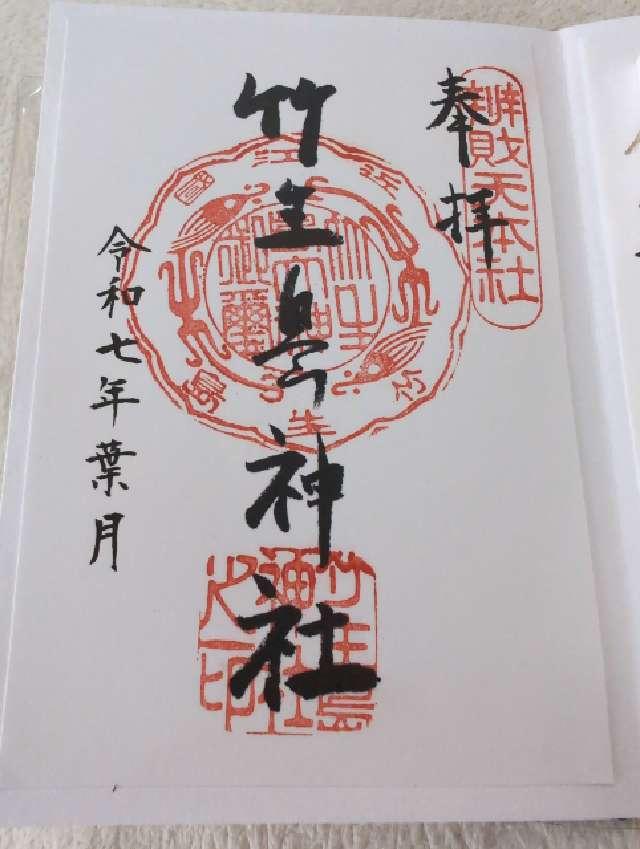 奉拝
辨財天本社
竹生島神社
竹生島神社之印
令和七年葉月